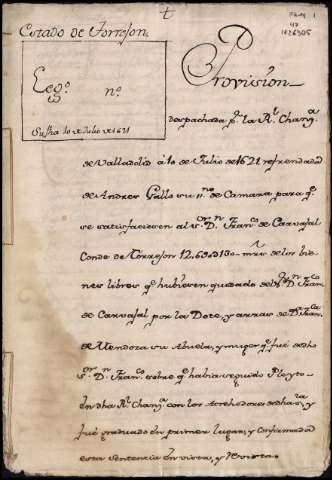 Estado de Torrejon.
Leg.º nº
Su fha 10 de Julio de 1621
Provision
despachada pr. la Rl. Changª.
de Valladolid à 10 de Julio de 1621 refrendada
de Andres Gallo su sno. de Camara para qe.
se satisfaciesen al sor. Dn. Franco. de Carvajal
Conde de Torrejon mrs. de los bie-
nes libres qe. hubiesen quedado del Dn. Fran.
de Carvajal por la Dote, y arras de Da.
de Mendoza su Abuela, y muger qe. fué de dho
Sor. Dn. Franco. sobre qe. habia seguido Pleyto
en dha Rl. Changª. con los acrehedores de dha
fué graduado en primer lugar, y confirmada
esta sentencia en vista, y Revista.